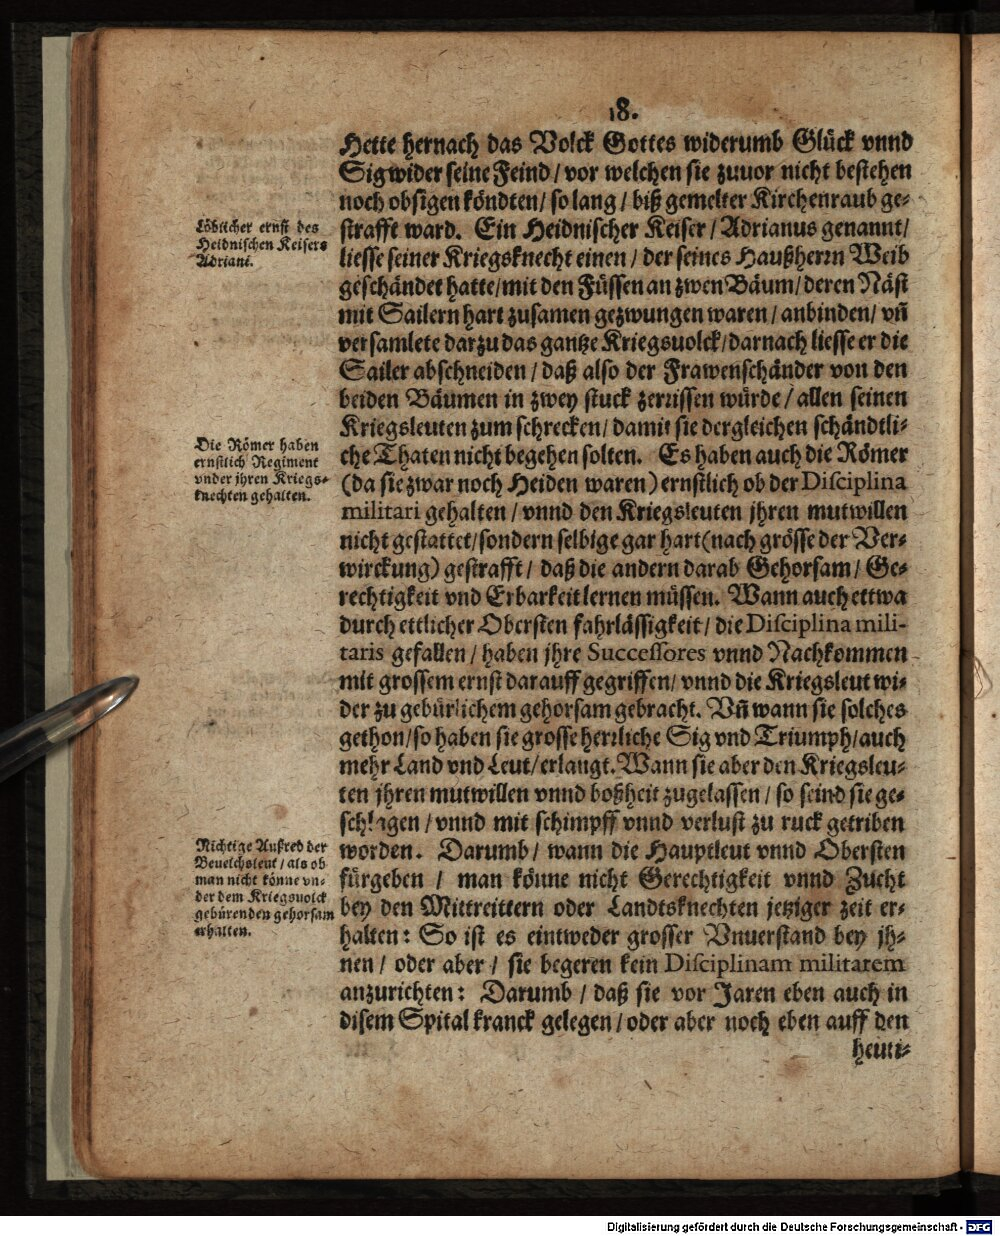 18.
Hette hernach das Volck Gottes widerumb Glück vnnd
Sig wider seine Feind / vor welchen sie zuuor nicht bestehen
noch obsigen köndten / so lang / biß gemelter Kirchenraub ge-
strafft ward. Ein Heidnischer Keiser / Adrianus genannt /
liesse seiner Kriegsknecht einen / der seines Haußherrn Weib
geschändet hatte / mit den Füssen an zwen Bäum / deren Näst
mit Sailern hart zusamen gezwungen waren / anbinden / vñ
versamlete darzu das gantze Kriegsuolck / darnach liesse er die
Sailer abschneiden / daß also der Frawenschänder von den
beiden Bäumen in zwey stuck zerrissen würde / allen seinen
Kriegsleuten zum schrecken / damit sie dergleichen schändtli-
che Thaten nicht begehen solten. Es haben auch die Römer
(da sie zwar noch Heiden waren) ernstlich ob der Disciplina
militari gehalten / vnnd den Kriegsleuten jhren mutwillen
nicht gestattet / sondern selbige gar hart (nach grösse der Ver-
wirckung) gestrafft / daß die andern darab Gehorsam / Ge-
rechtigkeit vnd Erbarkeit lernen müssen. Wann auch ettwa
durch ettlicher Obersten fahrlässigkeit / die Disciplina mili-
taris gefallen / haben jhre Successores vnnd Nachkommen
mit grossem ernst darauff gegriffen / vnnd die Kriegsleut wi-
der zu gebürlichem gehorsam gebracht. Vñ wann sie solches
gethon / so haben sie grosse herrliche Sig vnd Triumph / auch
mehr Land vnd Leut / erlangt. Wann sie aber den Kriegsleu-
ten jhren mutwillen vnnd boßheit zugelassen / so seind sie ge-
schlagen / vnnd mit schimpff vnnd verlust zu ruck getriben
worden. Darumb / wann die Hauptleut vnnd Obersten
fürgeben / man könne nicht Gerechtigkeit vnnd Zucht
bey den Mittreittern oder Landtsknechten jetziger zeit er-
halten: So ist es eintweder grosser Vnuerstand bey jh-
nen / oder aber / sie begeren kein Disciplinam militarem
anzurichten: Darumb / daß sie vor Jaren eben auch in
disem Spital kranck gelegen / oder aber noch eben auff den
heuti-
Löblicher ernst des
Heidnischen Keisers
Adriani.
Die Römer haben
ernstlich Regiment
vnder jhren Kriegs-
knechten gehalten.
Nichtige Außred der
Beuelchsleut / als ob
man nicht könne vn-
der dem Kriegsuolck
gebürenden gehorsam
erhalten.
Digitalisierung gefördert durch die Deutsche Forschungsgemeinschaft - DFG